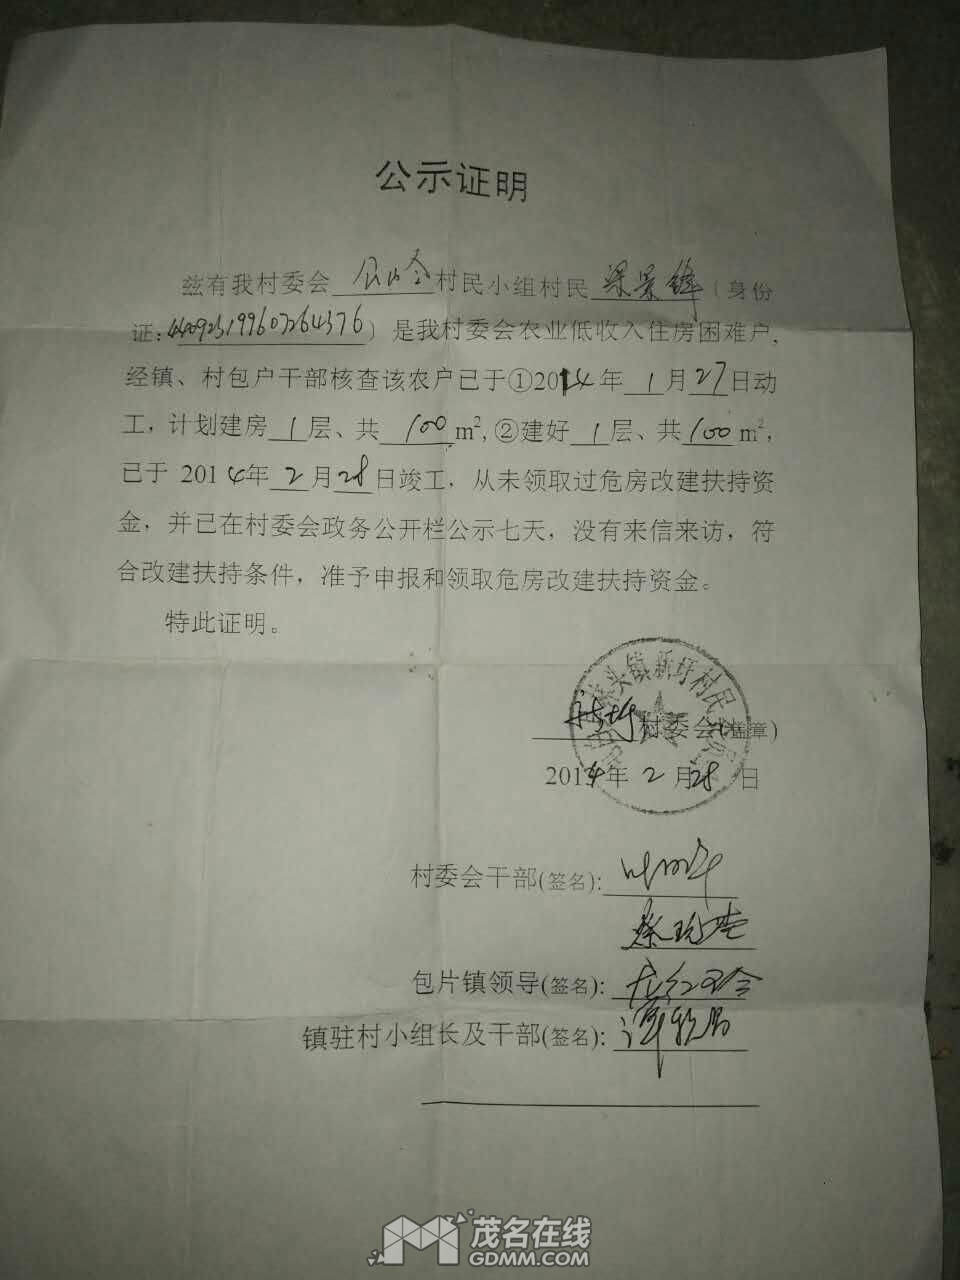 公示证明
兹有我村委会 村民小组村民 梁景锋 (身份
证: 440923199607264376) 是我村委会农业低收入住房困难户,
经镇、村包户干部核查该农户已于①2014年 1 月 27 日动
工, 计划建房 1 层、共 100 m², ②建好 1 层、共 100 m²,
已于 2014年 2 月 28 日竣工, 从未领取过危房改建扶持资
金, 并已在村委会政务公开栏公示七天, 没有来信来访, 符
合改建扶持条件, 准予申报和领取危房改建扶持资金。
特此证明。
林头镇新圩村民
新圩 村委会(盖章)
2014年 2 月 28 日
村委会干部(签名):
包片镇领导(签名):
镇驻村小组长及干部(签名):
茂名在线
GDMM.COM